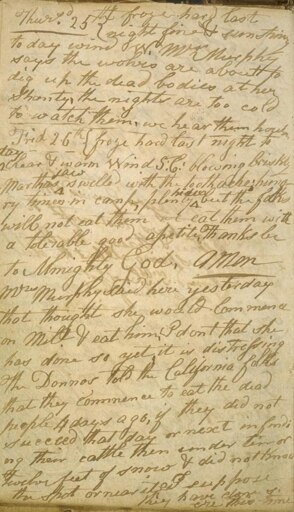 Thursd. 25th froze hard last
night fine & sunshiny
to day wind W. Mrs Murphy
says the wolves are about to
dig up the dead bodies at her
shanty, the nights are too cold
to watch them, we hear them howl
Frid 26th froze hard last night to
day clear & warm Wind S.E. blowing briskly
Marthas jaw swelled with the toothache, hung
ry times in camp, plenty hides but the folks
will not eat them we eat them with
a tolerable good apetite. Thanks be
to Almighty God. Amen
Mrs Murphy said here yesterday
that thought she would commence
on Milt. & eat him. I dont that she
has done so yet, it is distressing
The Donnos told the California folks
that they commence to eat the dead
people 4 days ago, if they did not
succeed that day or next in finding
their cattle then under ten or
twelve feet of snow & did not know
the spot or near it, I suppose
they have done so
ere this time